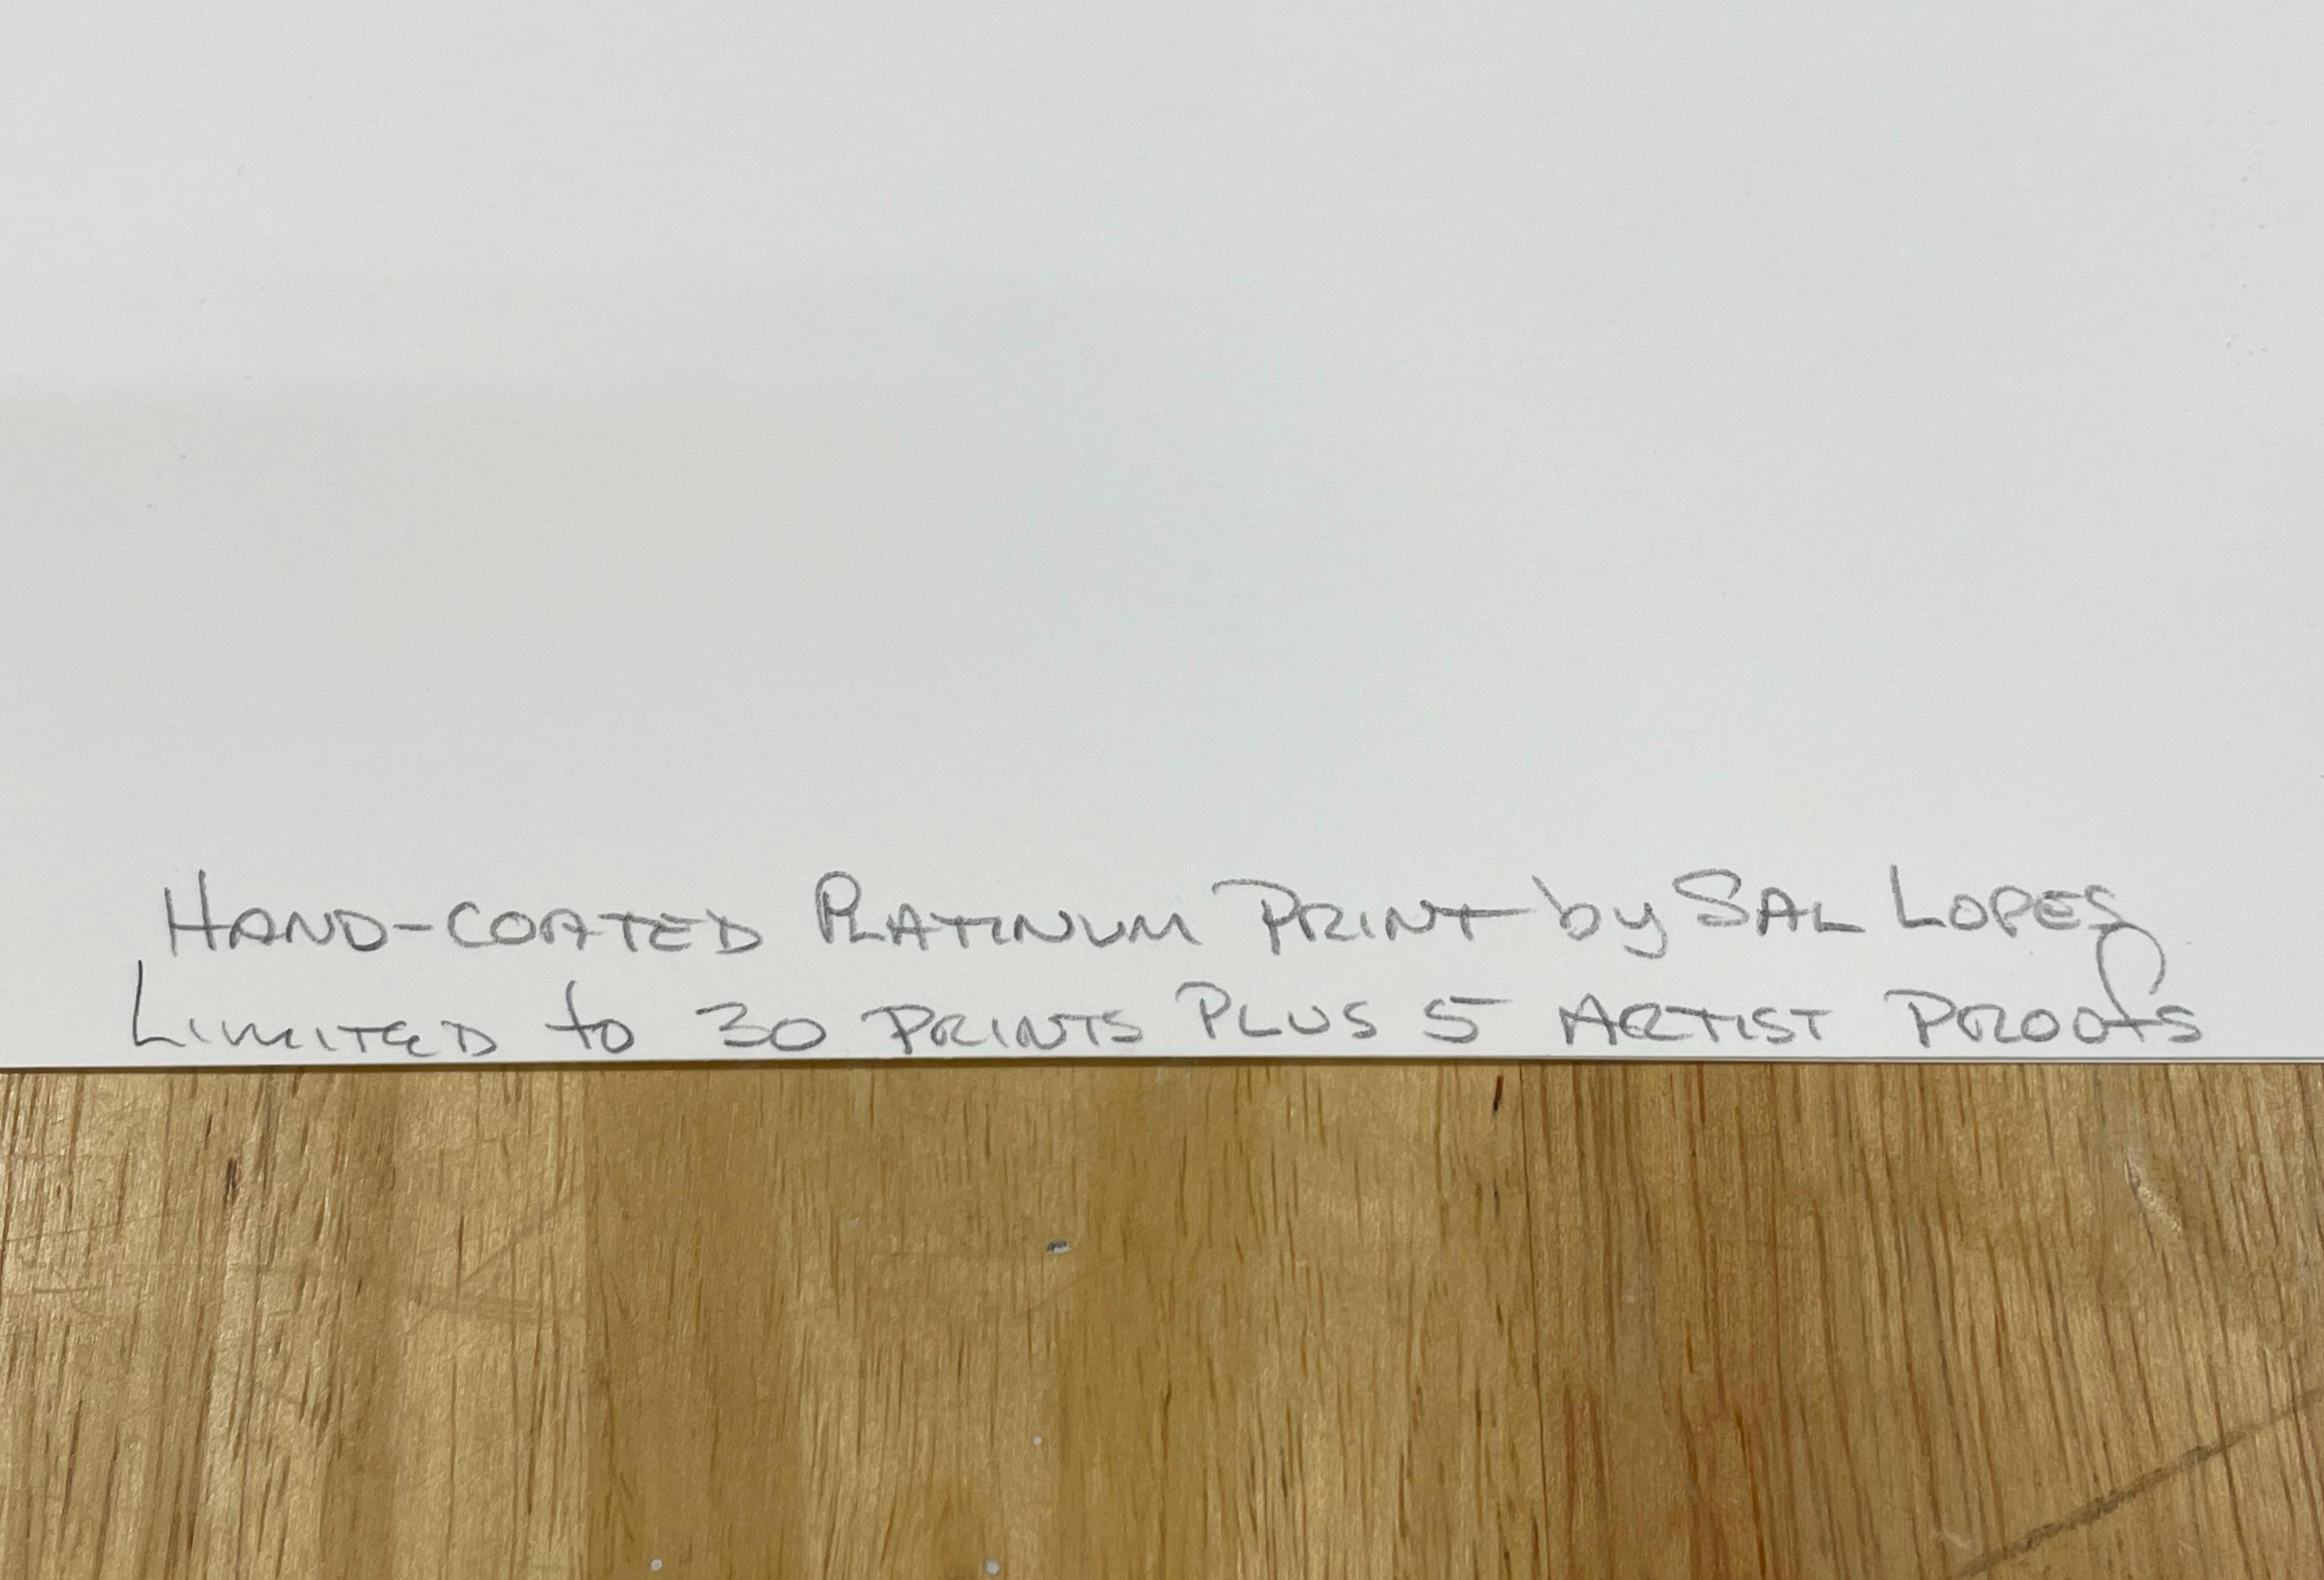 HAND-COATED PLATINUM PRINT by SAL LOPES
LIMITED to 30 PRINTS PLUS 5 ARTIST PROOfS